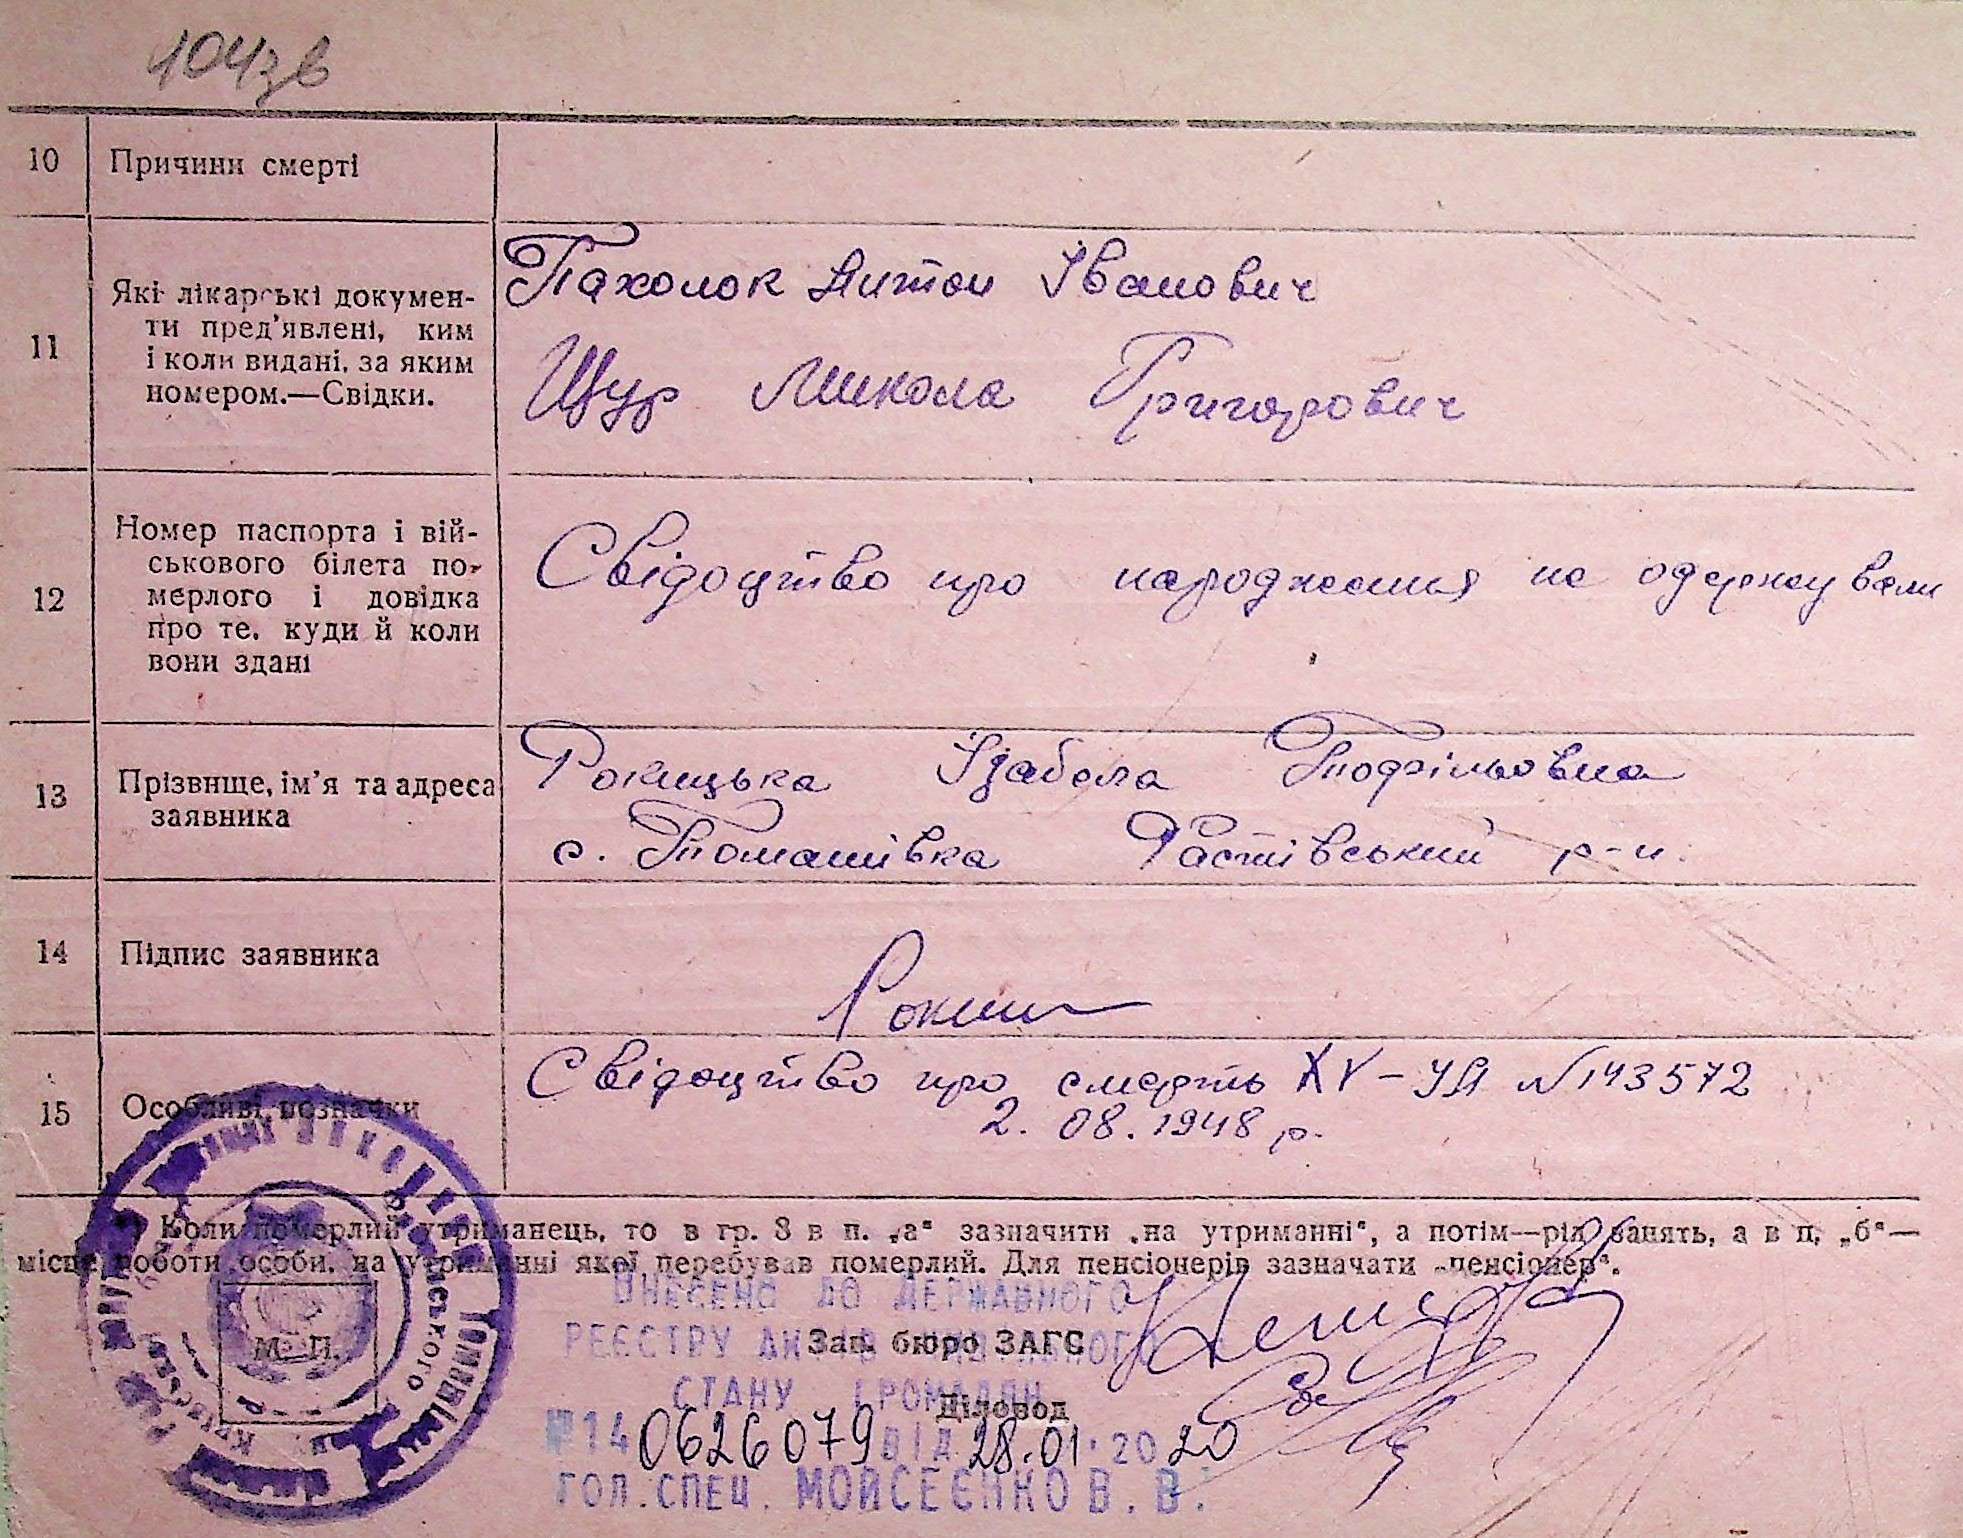 104зв
10 Причини смерті
11 Які лікарські докумен-
ти пред'явлені, ким
і коли видані, за яким
номером.—Свідки.
Пахолок Антон Іванович
Щур Микола Григорович
12 Номер паспорта і вій-
ськового білета по-
мерлого і довідка
про те, куди й коли
вони здані
Свідоцтво про народження не одержували
13 Прізвище, ім'я та адреса
заявника
Рокицька Ізабела Теофільовна
с. Томашівка Фастівський р-н.
14 Підпис заявника
15 Особливі позначки
Свідоцтво про смерть XV-УЯ №143572
2. 08. 1948 р.
Коли померлий утриманець, то в гр. 8 в п. „а“ зазначити „на утриманні“, а потім—рід занять, а в п. „б“—
місце роботи особи, на утриманні якої перебував померлий. Для пенсіонерів зазначати „пенсіонер“.
М. П.
Зав. бюро ЗАГС
Діловод
ВНЕСЕНО ДО ДЕРЖАВНОГО
РЕЄСТРУ АКТІВ ЦИВІЛЬНОГО
СТАНУ ГРОМАДЯН
№14 0626079 ВІД 28.01.2020
ГОЛ.СПЕЦ. МОЙСЕЄНКО В.В.